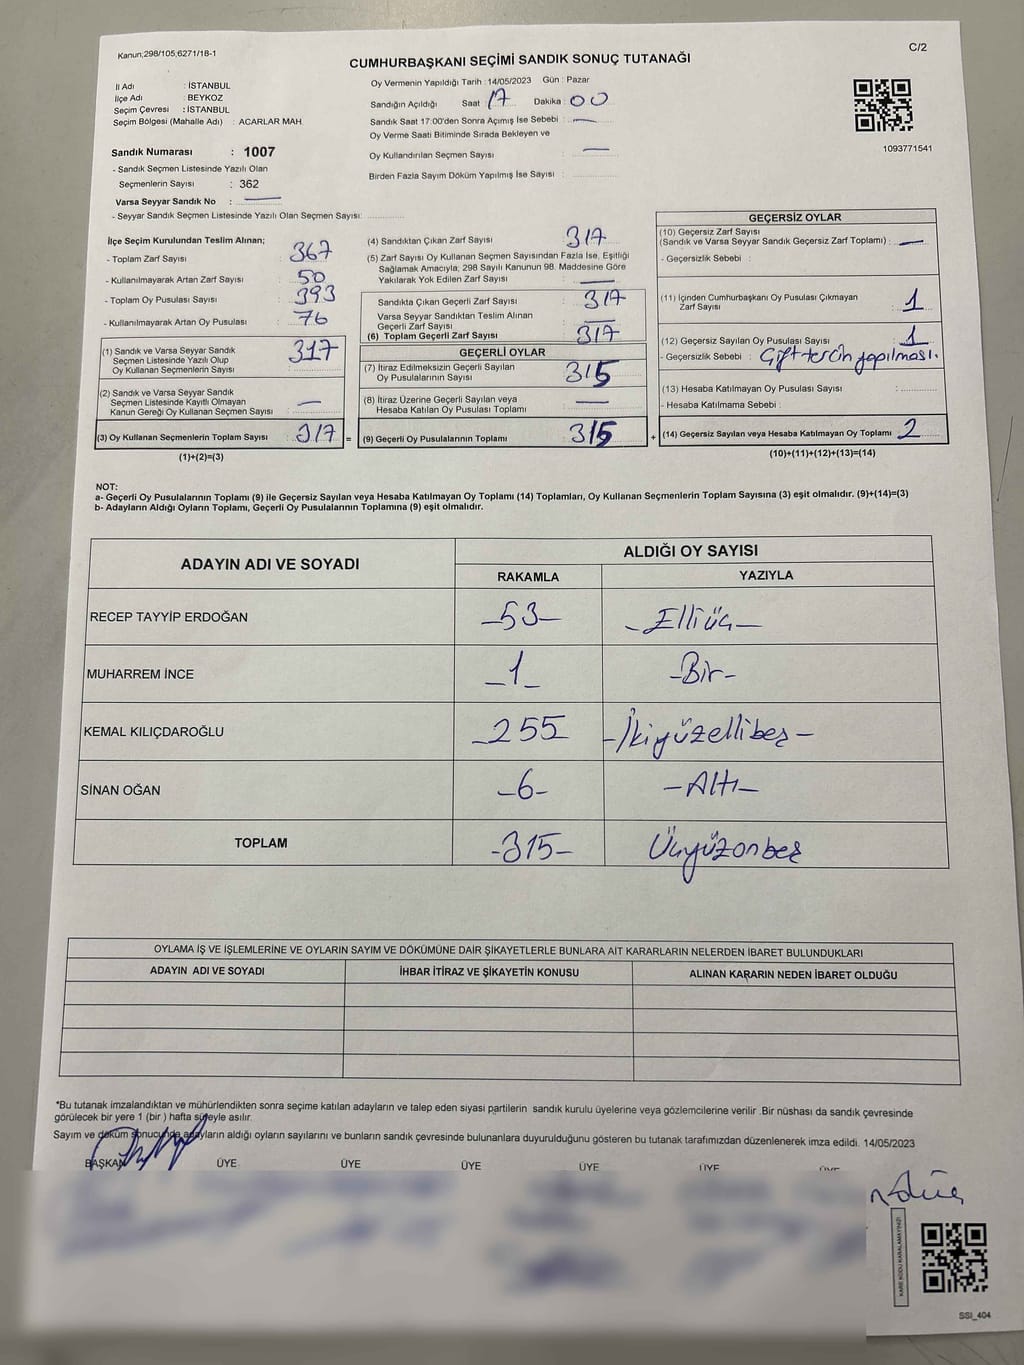 Kanun;298/105,6271/18-1
C/2
CUMHURBAŞKANI SEÇİMİ SANDIK SONUÇ TUTANAĞI
İl Adı : İSTANBUL
İlçe Adı : BEYKOZ
Seçim Çevresi : İSTANBUL
Seçim Bölgesi (Mahalle Adı) : ACARLAR MAH.
Sandık Numarası : 1007
- Sandık Seçmen Listesinde Yazılı Olan
Seçmenlerin Sayısı : 362
Varsa Seyyar Sandık No : —
- Seyyar Sandık Seçmen Listesinde Yazılı Olan Seçmen Sayısı:
Oy Vermenin Yapıldığı Tarih : 14/05/2023 Gün : Pazar
Sandığın Açıldığı Saat 17 Dakika 00
Sandık Saat 17:00'den Sonra Açımış İse Sebebi : —
Oy Verme Saati Bitiminde Sırada Bekleyen ve
Oy Kullandırılan Seçmen Sayısı : —
Birden Fazla Sayım Döküm Yapılmış İse Sayısı :
1093771541
İlçe Seçim Kurulundan Teslim Alınan;
- Toplam Zarf Sayısı : 367
- Kullanılmayarak Artan Zarf Sayısı : 50
- Toplam Oy Pusulası Sayısı : 393
- Kullanılmayarak Artan Oy Pusulası : 76
(1) Sandık ve Varsa Seyyar Sandık
Seçmen Listesinde Yazılı Olup
Oy Kullanan Seçmenlerin Sayısı : 317
(2) Sandık ve Varsa Seyyar Sandık
Seçmen Listesinde Kayıtlı Olmayan
Kanun Gereği Oy Kullanan Seçmen Sayısı : —
(3) Oy Kullanan Seçmenlerin Toplam Sayısı : 317 =
(1)+(2)=(3)
(4) Sandıktan Çıkan Zarf Sayısı : 317
(5) Zarf Sayısı Oy Kullanan Seçmen Sayısından Fazla İse, Eşitliği
Sağlamak Amacıyla; 298 Sayılı Kanunun 98. Maddesine Göre
Yakılarak Yok Edilen Zarf Sayısı : —
Sandıkta Çıkan Geçerli Zarf Sayısı : 317
Varsa Seyyar Sandıktan Teslim Alınan
Geçerli Zarf Sayısı : —
(6) Toplam Geçerli Zarf Sayısı : 317
GEÇERLİ OYLAR
(7) İtiraz Edilmeksizin Geçerli Sayılan
Oy Pusulalarının Sayısı : 315
(8) İtiraz Üzerine Geçerli Sayılan veya
Hesaba Katılan Oy Pusulası Toplamı : —
(9) Geçerli Oy Pusulalarının Toplamı : 315 +
GEÇERSİZ OYLAR
(10) Geçersiz Zarf Sayısı
(Sandık ve Varsa Seyyar Sandık Geçersiz Zarf Toplamı) : —
- Geçersizlik Sebebi :
(11) İçinden Cumhurbaşkanı Oy Pusulası Çıkmayan
Zarf Sayısı : 1
(12) Geçersiz Sayılan Oy Pusulası Sayısı : 1
- Geçersizlik Sebebi : Çift tercih yapılması.
(13) Hesaba Katılmayan Oy Pusulası Sayısı :
- Hesaba Katılmama Sebebi :
(14) Geçersiz Sayılan veya Hesaba Katılmayan Oy Toplamı : 2
(10)+(11)+(12)+(13)=(14)
NOT:
a- Geçerli Oy Pusulalarının Toplamı (9) ile Geçersiz Sayılan veya Hesaba Katılmayan Oy Toplamı (14) Toplamları, Oy Kullanan Seçmenlerin Toplam Sayısına (3) eşit olmalıdır. (9)+(14)=(3)
b- Adayların Aldığı Oyların Toplamı, Geçerli Oy Pusulalarının Toplamına (9) eşit olmalıdır.
ADAYIN ADI VE SOYADI
ALDIĞI OY SAYISI
RAKAMLA YAZIYLA
RECEP TAYYİP ERDOĞAN -53- -Elliüç-
MUHARREM İNCE -1- -Bir-
KEMAL KILIÇDAROĞLU -255 -İkiyüzellibeş-
SİNAN OĞAN -6- -Altı-
TOPLAM -315- Üçyüzonbeş
OYLAMA İŞ VE İŞLEMLERİNE VE OYLARIN SAYIM VE DÖKÜMÜNE DAİR ŞİKAYETLERLE BUNLARA AİT KARARLARIN NELERDEN İBARET BULUNDUKLARI
ADAYIN ADI VE SOYADI İHBAR İTİRAZ VE ŞİKAYETİN KONUSU ALINAN KARARIN NEDEN İBARET OLDUĞU
*Bu tutanak imzalandıktan ve mühürlendikten sonra seçime katılan adayların ve talep eden siyasi partilerin sandık kurulu üyelerine veya gözlemcilerine verilir .Bir nüshası da sandık çevresinde
görülecek bir yere 1 (bir ) hafta süreyle asılır.
Sayım ve döküm sonucunda adayların aldığı oyların sayılarını ve bunların sandık çevresinde bulunanlara duyurulduğunu gösteren bu tutanak tarafımızdan düzenlenerek imza edildi. 14/05/2023
BAŞKAN ÜYE ÜYE ÜYE ÜYE ÜYE ÜYE
KARE KODU KARALAMAYINIZ!
SSI_404